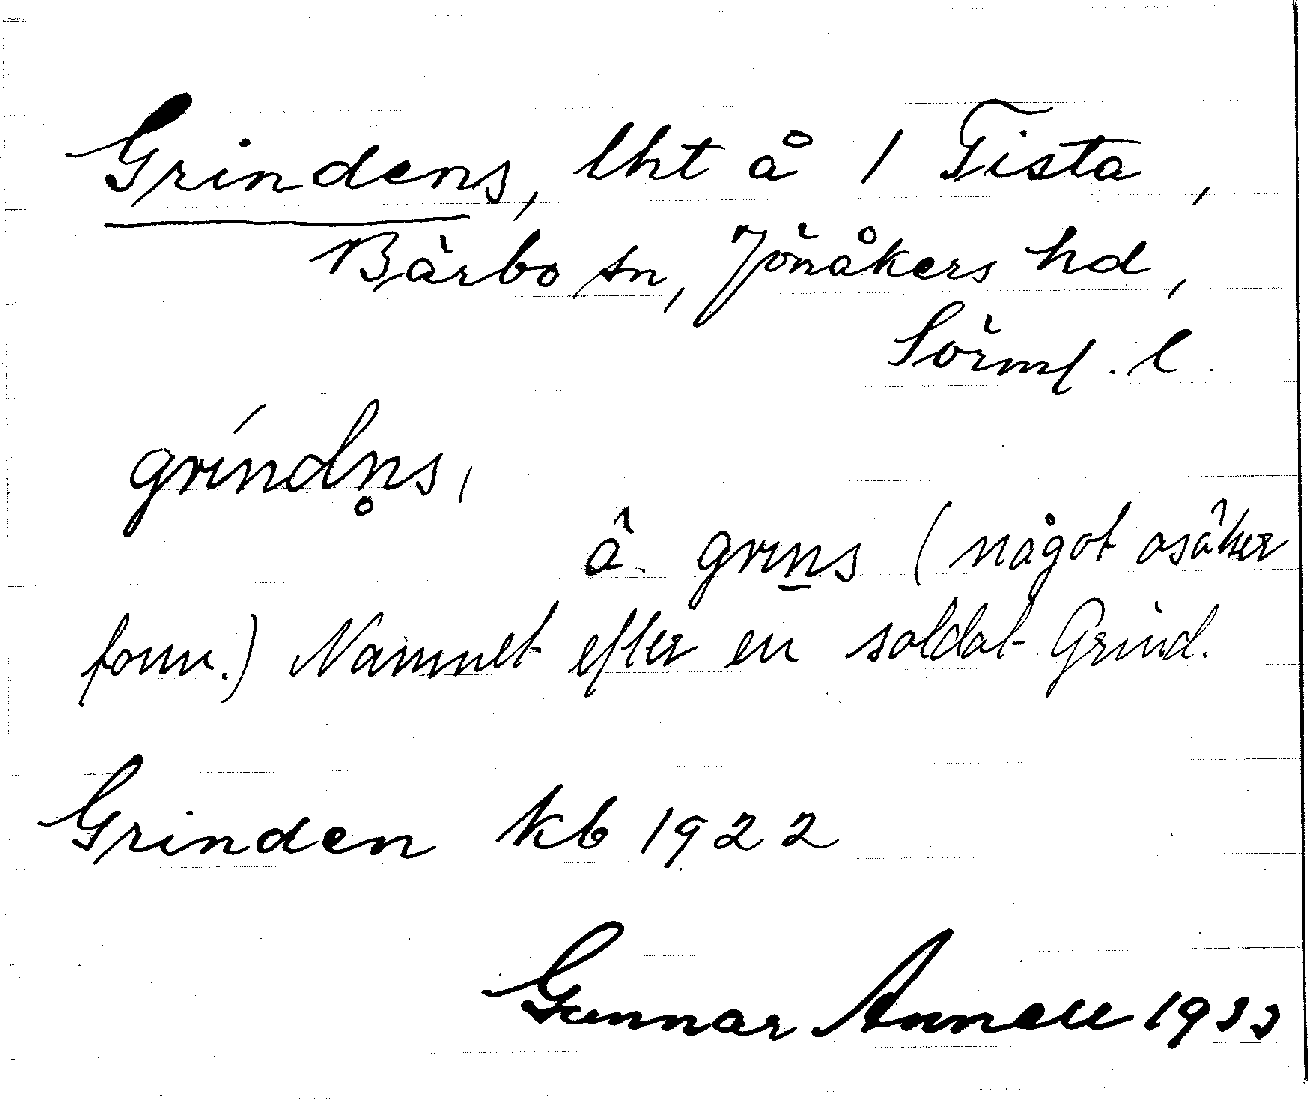 Grindens, lht å 1 Tista,
Bärbo sn, Jönåkers hd,
Sörml. l.
gríndn̥s,
â. grıṉs (något osäker
form.) Namnet efter en soldat Grind.
Grinden kb 1922
Gunnar Annell 1933